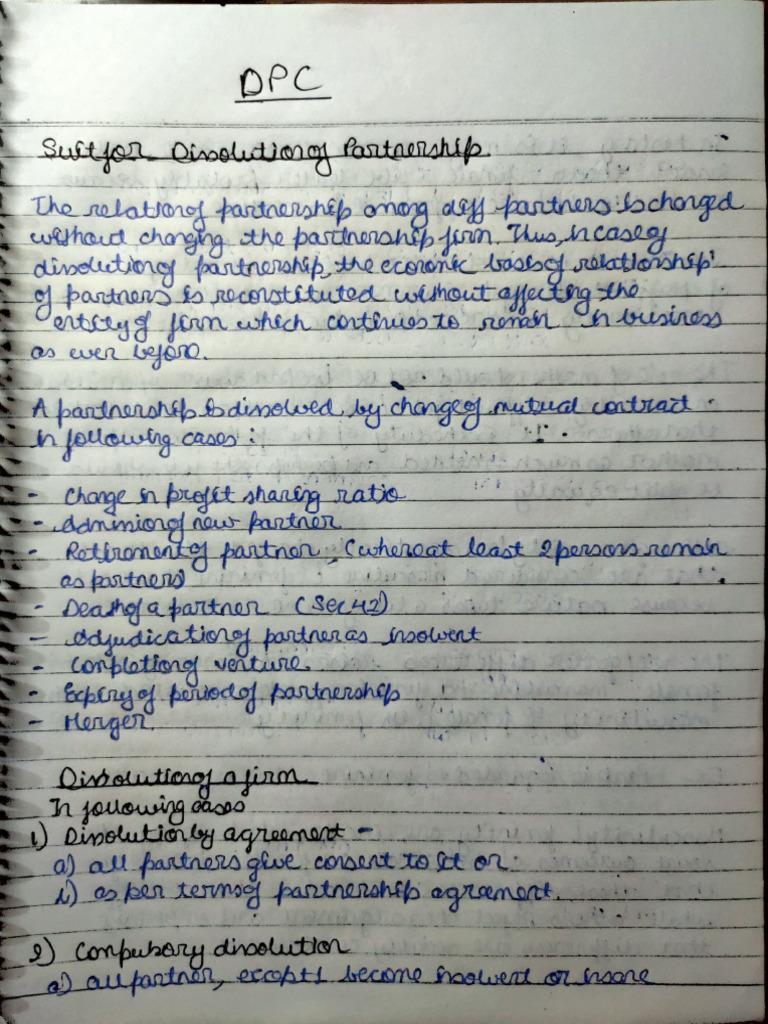 DPC
Suit for Dissolution of Partnership
The relation of partnership among diff partners is changed
without changing the partnership firm. Thus, in case of
dissolution of partnership, the economic bases of relationship
of partners is reconstituted without affecting the
entity of firm which continues to remain in business
as ever before.
A partnership is dissolved by change of mutual contract
in following cases :
- Change in profit sharing ratio
- Admission of new partner
- Retirement of partner, (where at least 2 persons remain
as partners)
- Death of a partner (Sec 42)
- Adjudication of partner as insolvent
- Completion of venture.
- Expiry of period of partnership
- Merger.
Dissolution of a firm
In following cases
1) Dissolution by agreement -
a) all partners give consent to it or
i) as per terms of partnership agreement.
2) Compulsory dissolution
a) all partner, except 1 become insolvent or insane